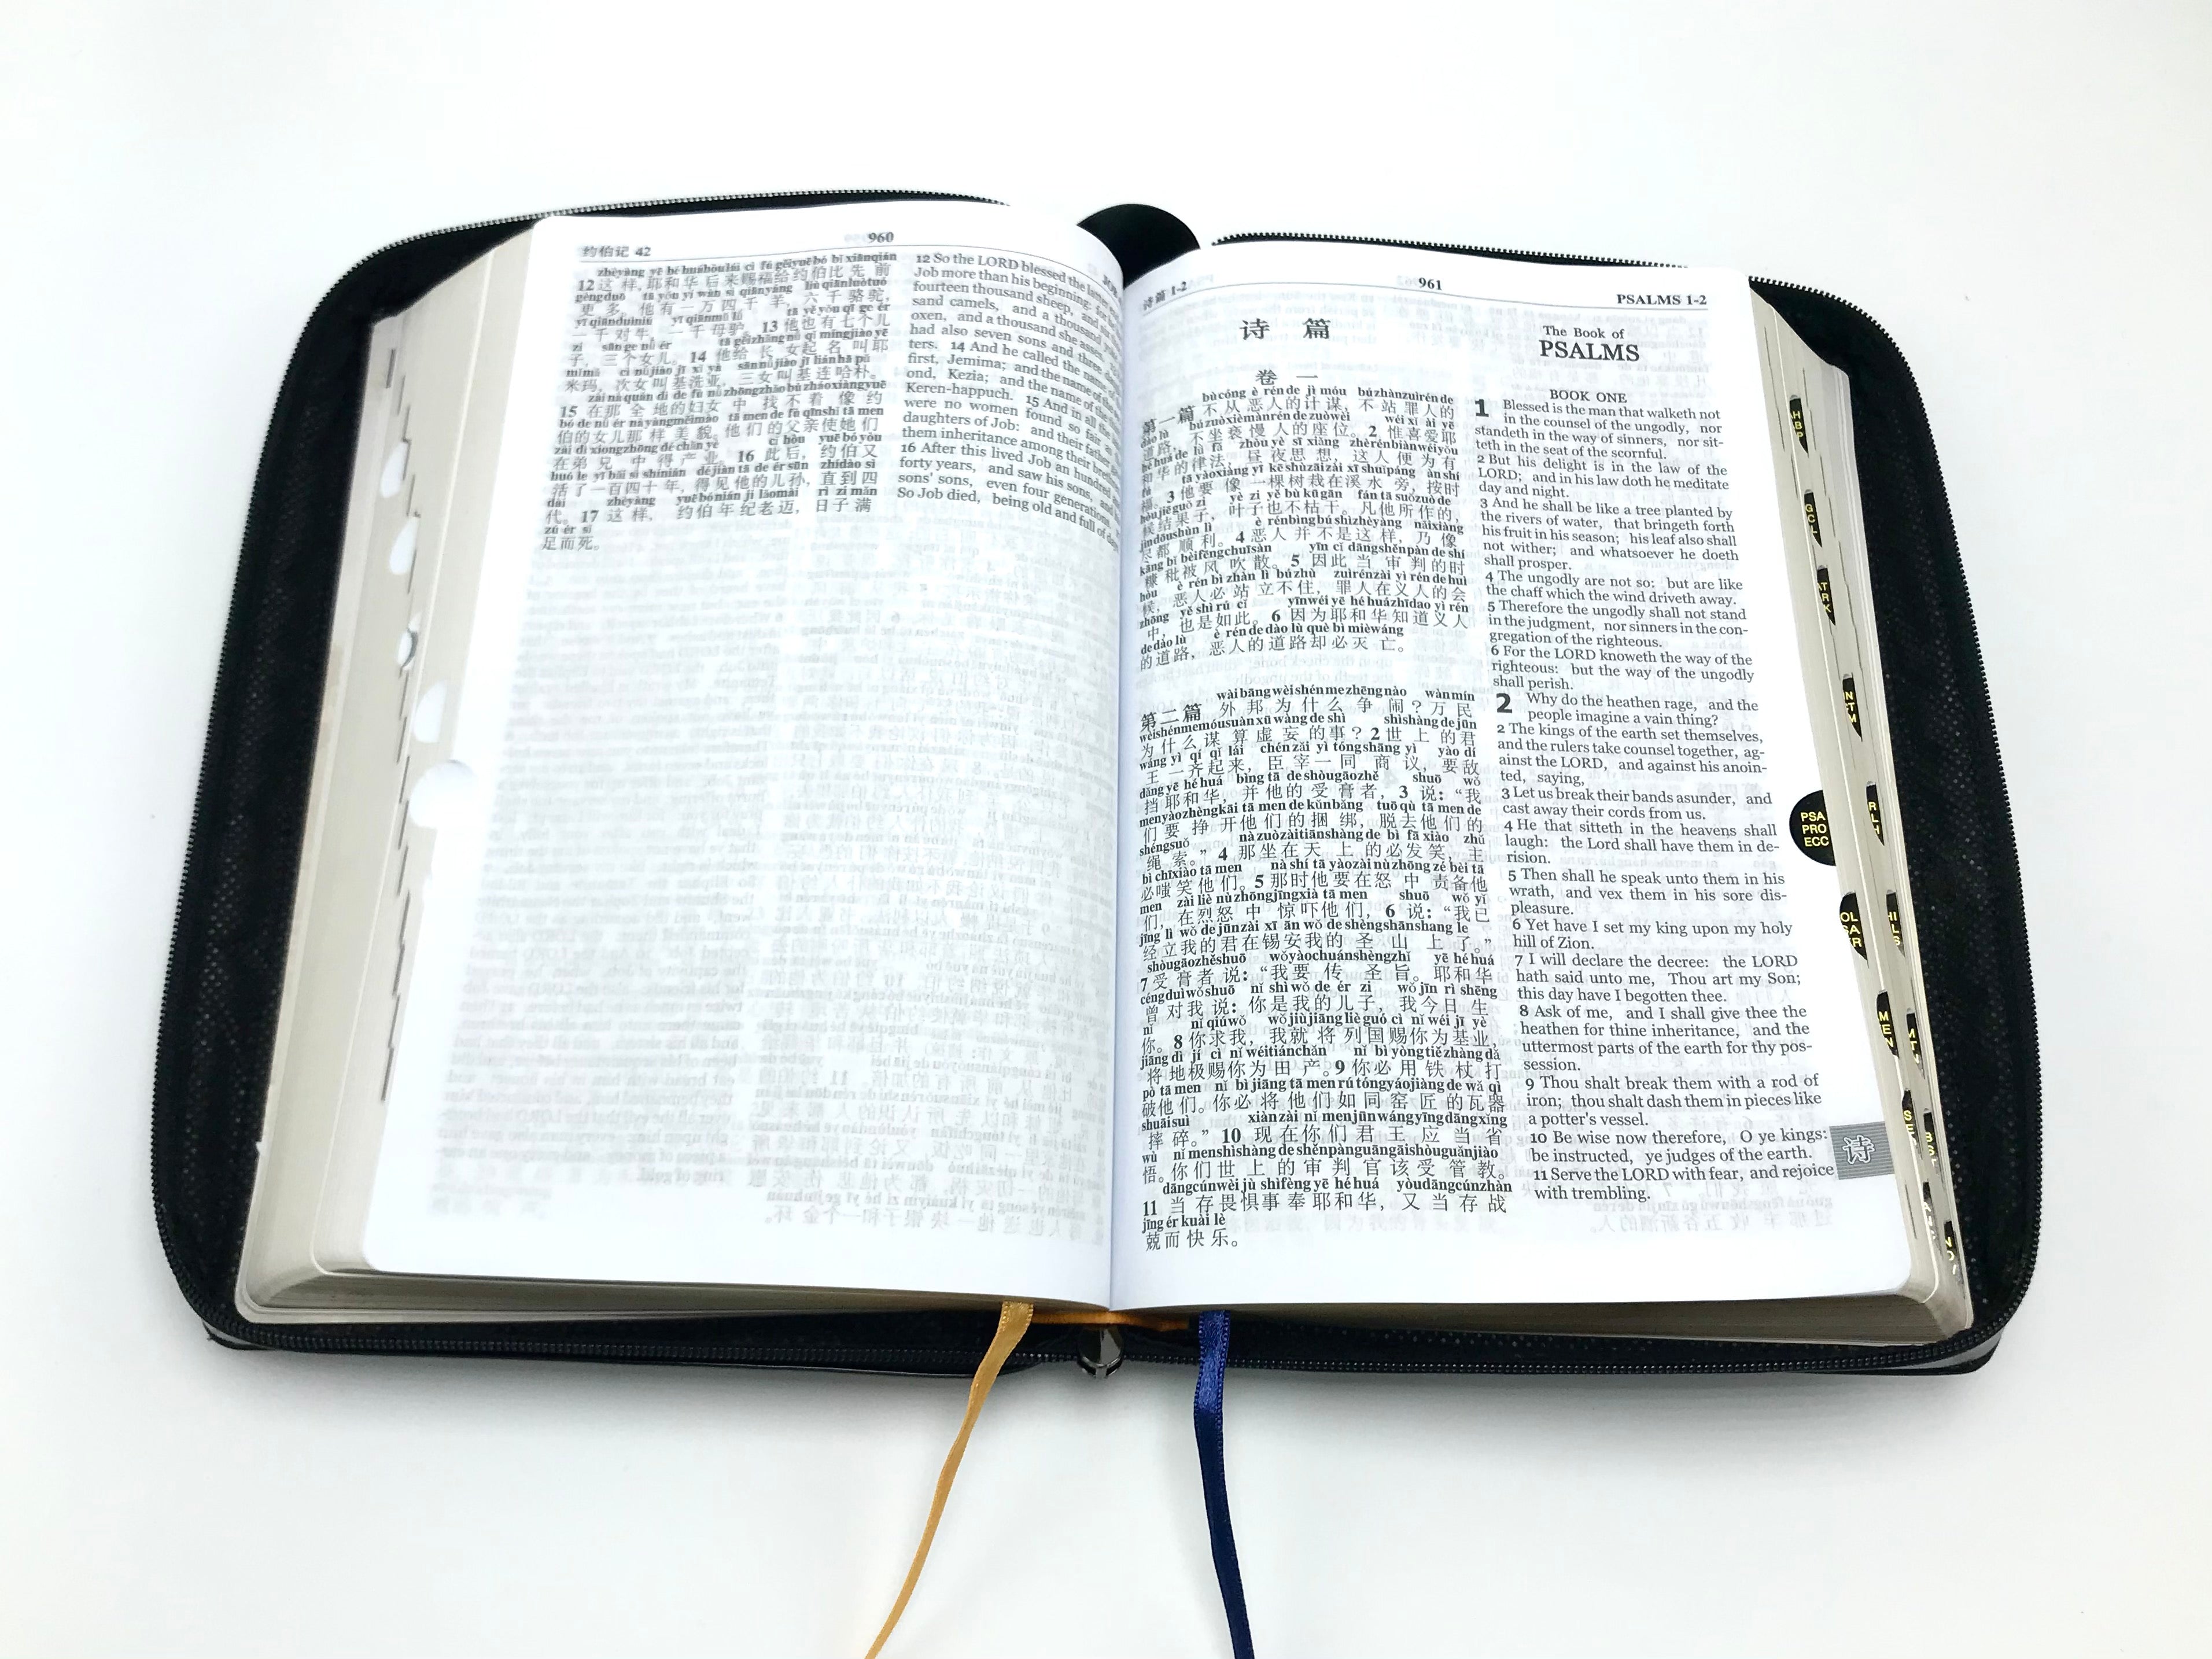 约伯记 42
960
zhèyàng yē hé huáhòulái cì fú gěiyuēbó bǐ xiānqián
12 这样,耶和华后来赐福给约伯比先前
gèngduō tā yǒu yī wàn sì qiānyáng liù qiānluòtuó
更多,他有一万四千羊,六千骆驼,
yī qiānduìniú yī qiānmǔ lǘ tā yě yǒu qī ge ér
一千对牛,一千母驴。13 他也有七个儿
zi sān ge nǚ ér tā gěizhǎngnǚ qǐ míngjiào yē
子,三个女儿。14 他给长女起名叫耶
mǐmǎ cì nǚjiào jī xǐ yà sānnǚjiào jī liánhā pǔ
米玛,次女叫基洗亚,三女叫基连哈朴。
zài nà quán dì de fù nǚzhōngzhǎobùzháoxiàngyuē
15 在那全地的妇女中找不着像约
bó de nǚ ér nàyàngměimào tā men de fù qīnshǐ tā men
伯的女儿那样美貌。他们的父亲使她们
zài dì xiongzhōng dé chǎn yè cǐ hòu yuē bó yòu
在弟兄中得产业。16 此后,约伯又
huó le yī bǎi sì shínián déjiàn tā de ér sūn zhídào sì
活了一百四十年,得见他的儿孙,直到四
dài zhèyàng yuē bó nián jì lǎomài rì zi mǎn
代。17 这样,约伯年纪老迈,日子满
zú ér sǐ
足而死。
12 So the LORD blessed the latter
Job more than his beginning: for he
fourteen thousand sheep, and six
sand camels, and a thousand
oxen, and a thousand she asses.
had also seven sons and three
ters. 14 And he called the name of
first, Jemima; and the name of the
ond, Kezia; and the name of the
Keren-happuch. 15 And in all the
were no women found so fair as
daughters of Job: and their father
them inheritance among their
16 After this lived Job an hundred
forty years, and saw his sons, and
sons' sons, even four generations.
So Job died, being old and full of
诗篇 1-2
961
PSALMS 1-2
诗 篇
卷 一
bùcóng è rén de jì móu bùzhànzuìrén de
第一篇 不从恶人的计谋,不站罪人的
dào lù bùzuòxièmànrén de zuòwèi wéi xǐ ài yē
道路,不坐亵慢人的座位。2 惟喜爱耶
hé huá de lǜ fǎ zhòu yè sī xiǎng zhèrénbiànwéiyǒu
和华的律法,昼夜思想,这人便为有
fú tā yàoxiàng yī kē shùzāizài xī shuǐpáng àn shí
福。3 他要像一棵树栽在溪水旁,按时
hòu jiē guǒ zi yè zi yě bù kū gān fán tā suǒzuò de
候结果子,叶子也不枯干。凡他所作的,
jìndōushùn lì è rénbìngbú shìzhèyàng nǎixiàng
尽都顺利。4 恶人并不是这样,乃像
kāng bǐ bèifēngchuīsàn yīn cǐ dāngshěnpàn de shí
糠秕被风吹散。5 因此当审判的时
hòu è rén bì zhàn lì búzhù zuìrénzài yì rén de huì
候,恶人必站立不住,罪人在义人的会
zhōng yě shì rú cǐ yīnwéi yē hé huázhīdao yì rén
中,也是如此。6 因为耶和华知道义人
de dào lù è rén de dào lù què bì mièwáng
的道路,恶人的道路却必灭亡。
wài bāng wèi shénme zhēngnào wànmín
第二篇 外邦为什么争闹?万民
wèishénmemóusuàn xū wàng de shì shìshàng de jūn
为什么谋算虚妄的事?2 世上的君
wáng yì qí qǐ lái chénzǎi yì tóngshāng yì yào dí
王一齐起来,臣宰一同商议,要敌
dǎng yē hé huá bìng tā de shòugāozhě shuō wǒ
挡耶和华,并他的受膏者,3 说:“我
menyàozhèngkāi tā men de kǔnbǎng tuō qù tā men de
们要挣开他们的捆绑,脱去他们的
shéngsuǒ nàzuòzàitiānshàng de bì fā xiào zhǔ
绳索。”4 那坐在天上的必发笑,主
bì chīxiào tā men nà shí tā yàozài nùzhōng zé bèi tā
必嗤笑他们。5 那时他要在怒中责备他
men zài liè nùzhōngjīngxià tā men shuō wǒ yǐ
们,在烈怒中惊吓他们,6 说:“我已
jīng lì wǒ de jūnzài xī ān wǒ de shèngshānshang le
经立我的君在锡安我的圣山上了。”
shòugāozhěshuō wǒyàochuánshèngzhǐ yē hé huá
7 受膏者说:“我要传圣旨。耶和华
céngduìwǒshuō nǐ shì wǒ de ér zi wǒ jīn rì shēng
曾对我说:你是我的儿子,我今日生
nǐ nǐ qiúwǒ wǒjiùjiāngliè guó cì nǐ wéi jī yè
你。8 你求我,我就将列国赐你为基业,
jiāng dì jí cì nǐ wéitiánchǎn nǐ bì yòng tiězhàng dǎ
将地极赐你为田产。9 你必用铁杖打
pò tā men nǐ bì jiāng tā men rú tóngyáojiàng de wǎ qì
破他们。你必将他们如同窑匠的瓦器
shuāisuì xiànzài nǐ menjūnwángyīngdāngxǐng
摔碎。”10 现在你们君王应当省
wù nǐ menshìshàng de shěnpànguāngāishòuguǎnjiào
悟。你们世上的审判官该受管教。
dāngcúnwèi jù shìfèng yē hé huá yòudāngcúnzhàn
11 当存畏惧事奉耶和华,又当存战
jīng ér kuài lè
兢而快乐。
The Book of
PSALMS
BOOK ONE
1 Blessed is the man that walketh not
in the counsel of the ungodly, nor
standeth in the way of sinners, nor sit-
teth in the seat of the scornful.
2 But his delight is in the law of the
LORD; and in his law doth he meditate
day and night.
3 And he shall be like a tree planted by
the rivers of water, that bringeth forth
his fruit in his season; his leaf also shall
not wither; and whatsoever he doeth
shall prosper.
4 The ungodly are not so: but are like
the chaff which the wind driveth away.
5 Therefore the ungodly shall not stand
in the judgment, nor sinners in the con-
gregation of the righteous.
6 For the LORD knoweth the way of the
righteous: but the way of the ungodly
shall perish.
2 Why do the heathen rage, and the
people imagine a vain thing?
2 The kings of the earth set themselves,
and the rulers take counsel together, ag-
ainst the LORD, and against his anoin-
ted, saying,
3 Let us break their bands asunder, and
cast away their cords from us.
4 He that sitteth in the heavens shall
laugh: the Lord shall have them in de-
rision.
5 Then shall he speak unto them in his
wrath, and vex them in his sore dis-
pleasure.
6 Yet have I set my king upon my holy
hill of Zion.
7 I will declare the decree: the LORD
hath said unto me, Thou art my Son;
this day have I begotten thee.
8 Ask of me, and I shall give thee the
heathen for thine inheritance, and the
uttermost parts of the earth for thy pos-
session.
9 Thou shalt break them with a rod of
iron; thou shalt dash them in pieces like
a potter's vessel.
10 Be wise now therefore, O ye kings:
be instructed, ye judges of the earth.
11 Serve the LORD with fear, and rejoice
with trembling.
诗
PSA
PRO
ECC